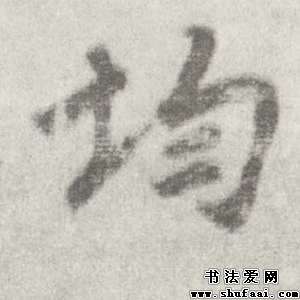 均
书法爱网
www.shufaai.com